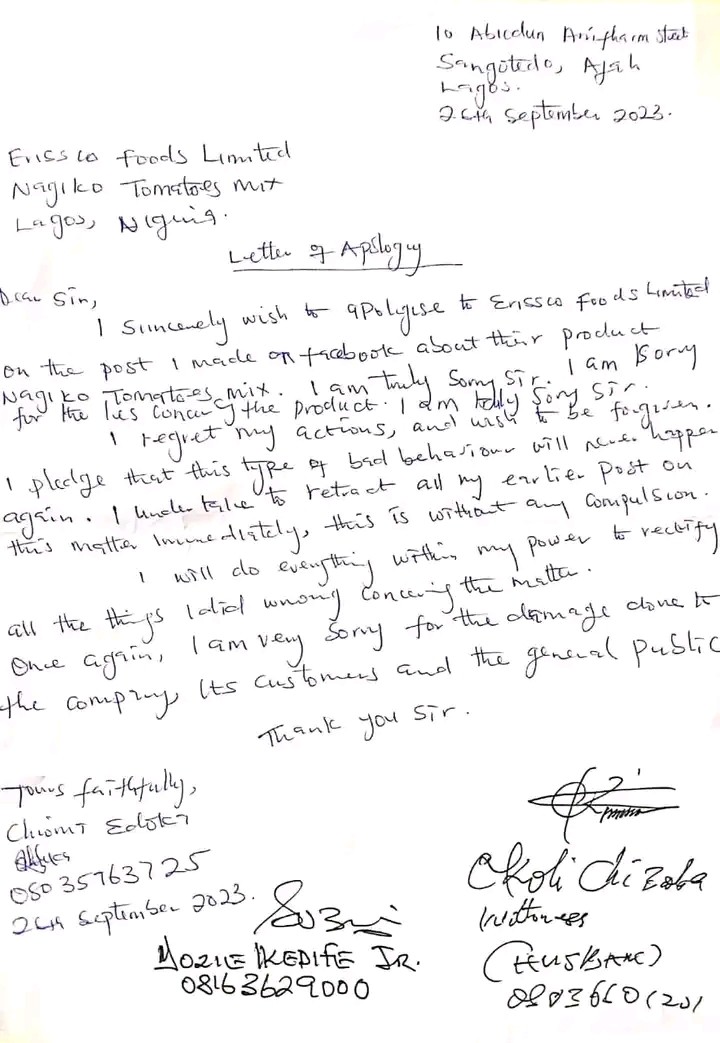 10 Abiedun Arifharm Street
Sangotedo, Ajah
Lagos.
26th September 2023.
Erissco Foods Limited
Nagiko Tomatoes mix
Lagos, Nigeria.
Letter of Apology
Dear Sir,
I Sincerely wish to apologise to Erissco Foods Limited
on the post I made on facebook about their product
Nagiko Tomatoes mix. I am truly Sorry Sir. I am Sorry
for the lies concerning the product. I am truly Sorry Sir.
I regret my actions, and wish to be forgiven.
I pledge that this type of bad behaviour will never happen
again. I undertake to retract all my earlier post on
this matter immediately, this is without any compulsion.
I will do everything within my power to rectify
all the things I did wrong concering the matter.
Once again, I am very Sorry for the damage done to
the company, Its customers and the general public
Thank you Sir.
Yours faithfully,
Chioma Edoka
08035763725
26th September 2023.
MOZIE IKEDIFE JR.
08163629000
Okoli Chizoba
Wittness
(HUSBAND)